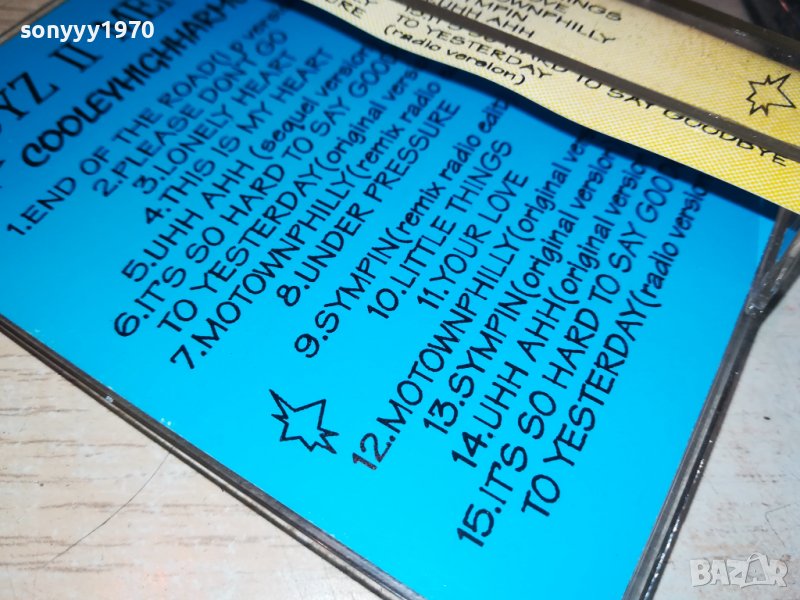 sonyyy1970
YZ II MEN
COOLEYHIGHHARMO
1.END OF THE ROAD(LP version
2.PLEASE DON'T GO
3.LONELY HEART
4.THIS IS MY HEART
5.UHH AHH (sequel version
6.IT'S SO HARD TO SAY GOOD
TO YESTERDAY(original version
7.MOTOWNPHILLY(remix radio
8.UNDER PRESSURE
9.SYMPIN(remix radio edit
10.LITTLE THINGS
11.YOUR LOVE
12.MOTOWNPHILLY(original ver
13.SYMPIN(original version
14.UHH AHH(original version
15.IT'S SO HARD TO SAY GOO
TO YESTERDAY(radio version
THINGS
OWNPHILLY
SYMPIN
UHH AHH
HARD TO SAY GOODBYE
TO YESTERDAY
(radio version)
URE
BAZAR